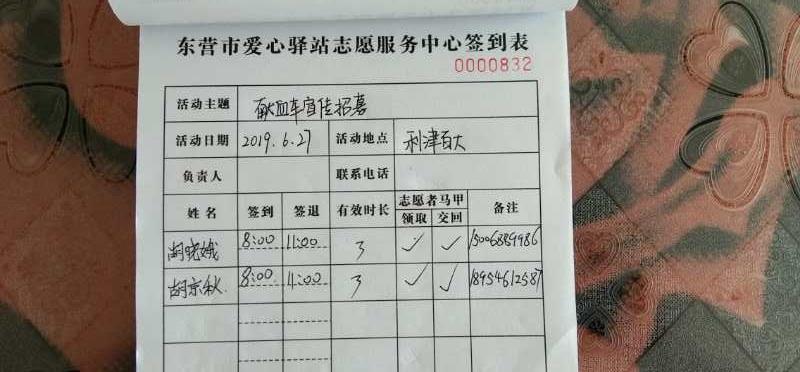 东营市爱心驿站志愿服务中心签到表
0000832
活动主题 献血车宣传招募
活动日期 2019.6.27 活动地点 利津百大
负责人 联系电话
姓名 签到 签退 有效时长 志愿者马甲 备注
领取 交回
胡晓娥 8:00 11:00 3 ✓ ✓ 15006889986
胡京秋 8:00 11:00 3 ✓ ✓ 18954612587